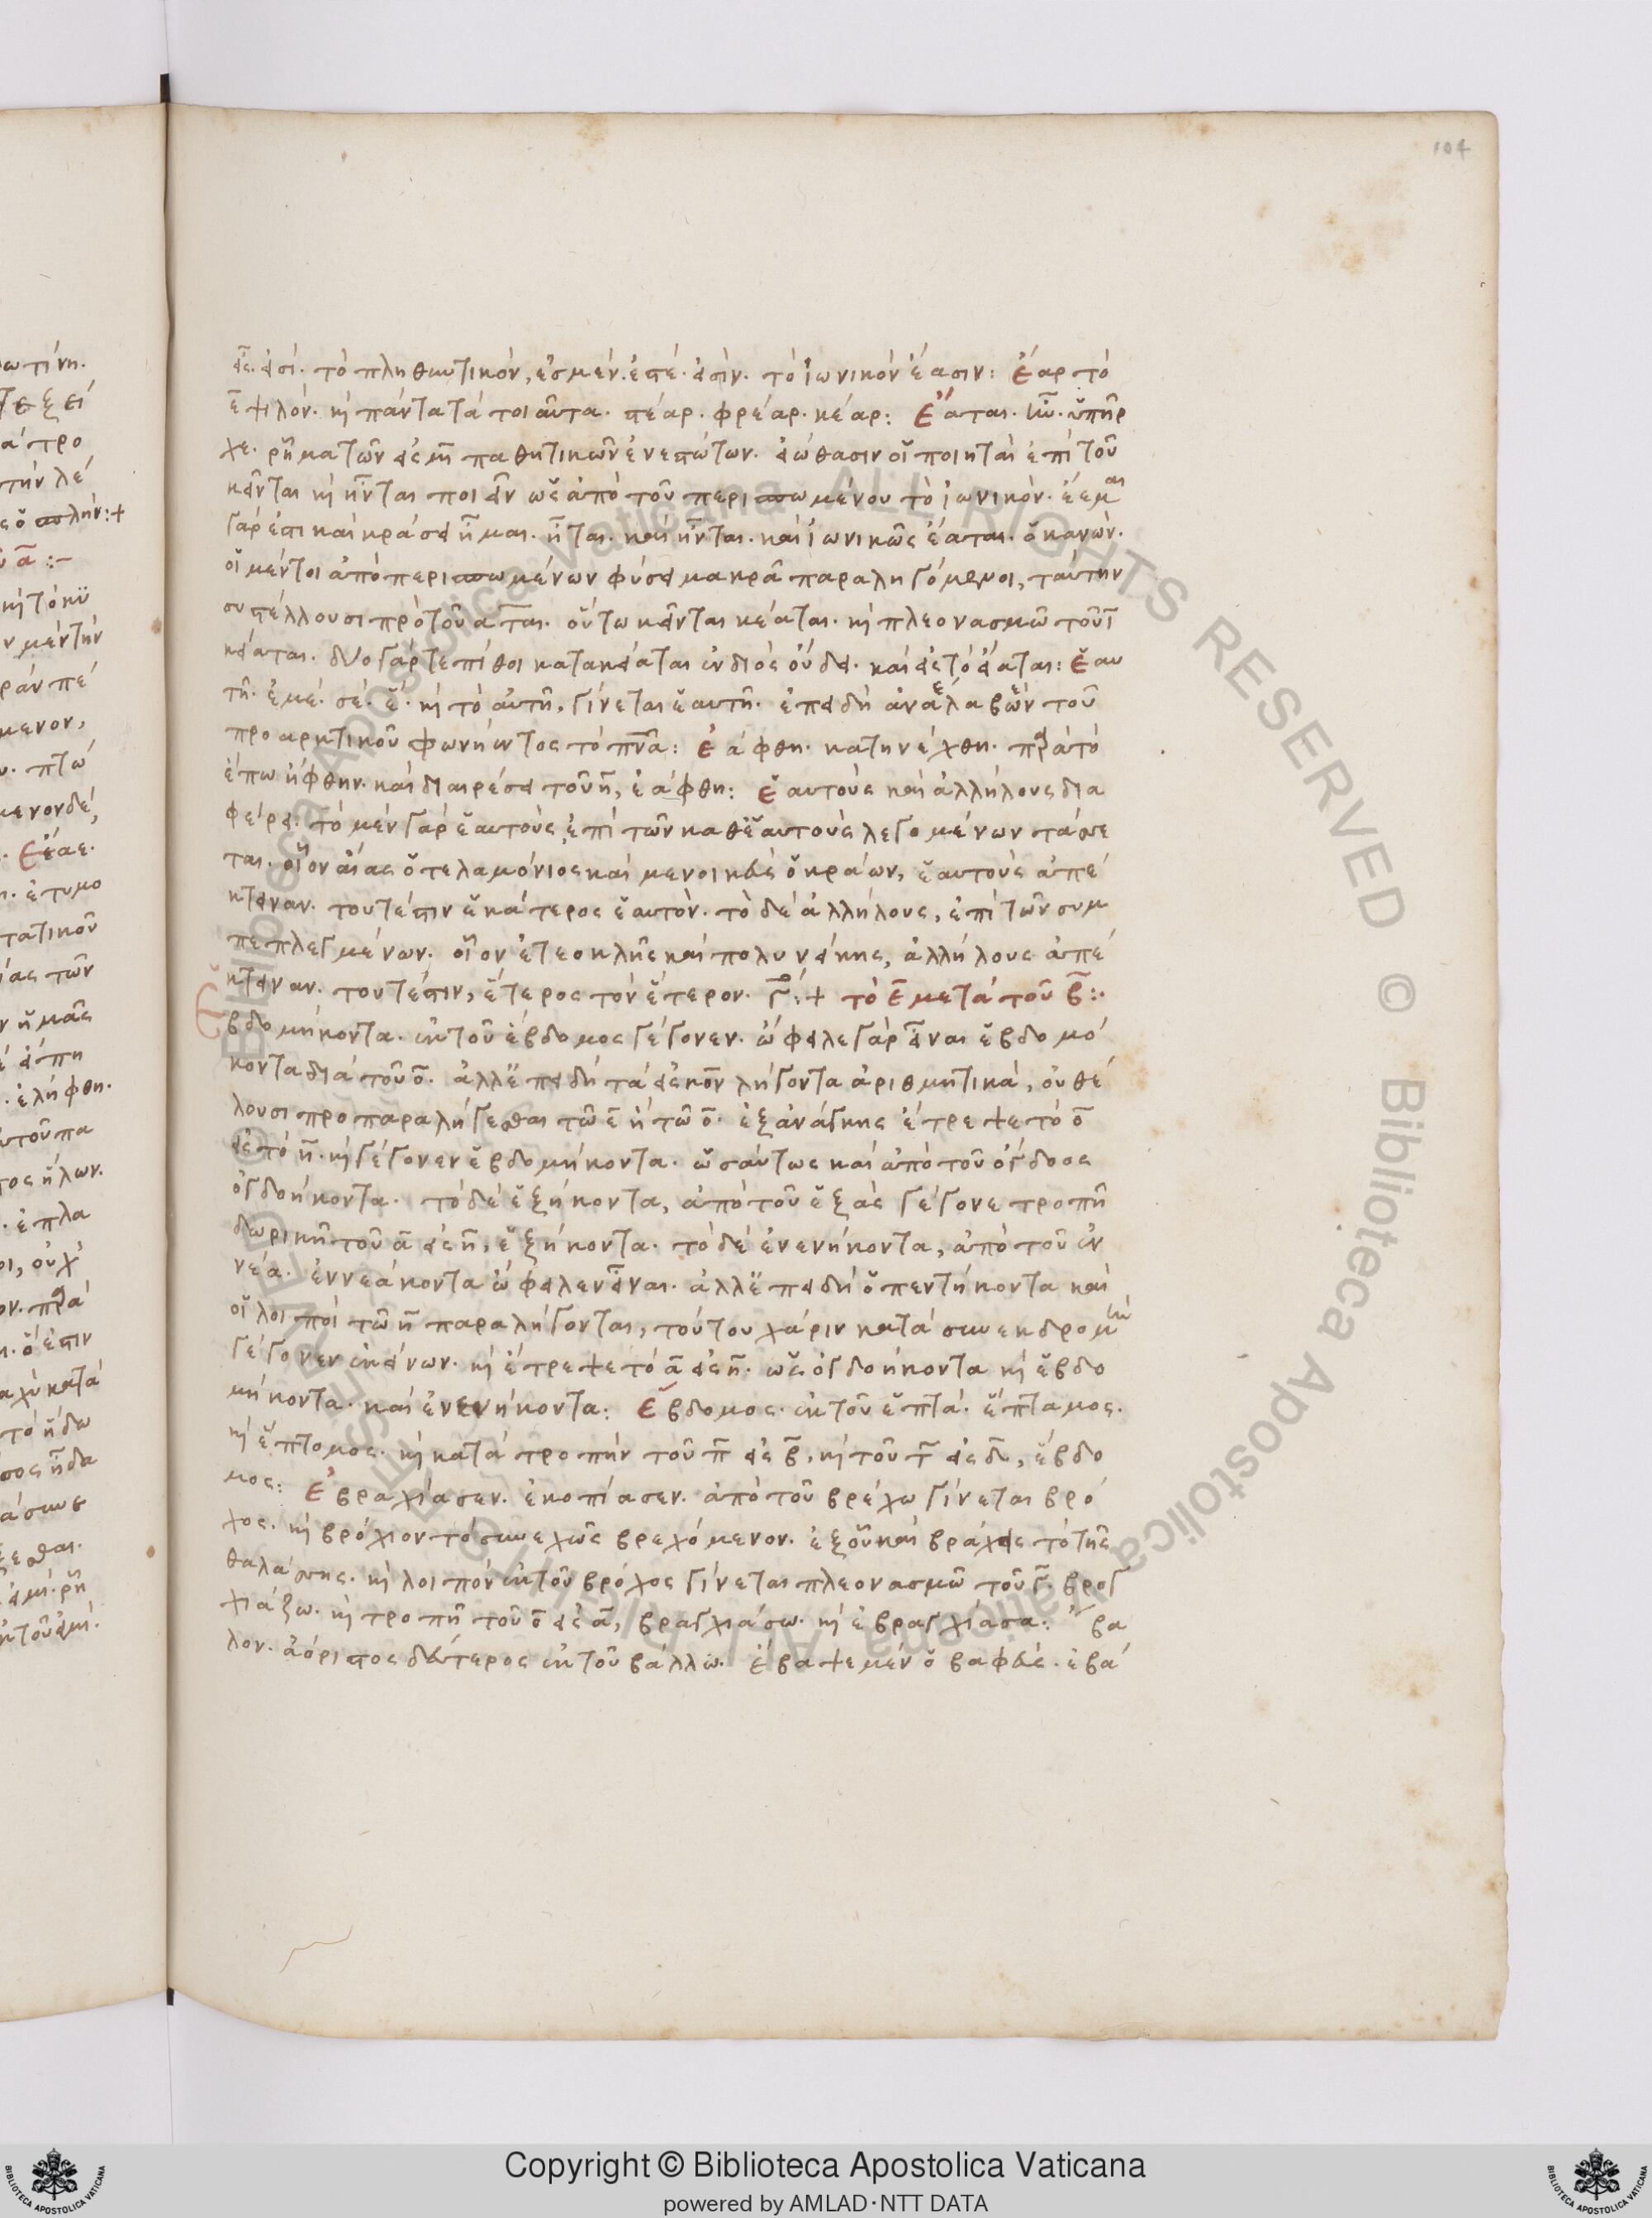 104
εἶς. εἰσί. τὸ πληθυντικὸν, ἐσμέν. ἐστέ. εἰσίν. τὸ ἰωνικὸν ἔασιν: Ἔαρ τὸ
ε̄ ψιλόν. κ(αὶ) πάντα τὰ τοιαῦτα. στέαρ. φρέαρ. κέαρ: Ἕαται. ὑπῆρ
χε. ῥημάτων εἰς μ̄ι παθητικῶν ἐνεστώτων. εἰώθασιν οἱ ποιηταὶ ἐπὶ τοῦ
κεῖνται κ(αὶ) ἧνται ποιεῖν ὡς ἀπὸ τοῦ περισπωμένου τὸ ἰωνικόν. ἕεμαι
γάρ ἐστι καὶ κράσει ἧμαι. ἧται. καὶ ἧνται. καὶ ἰωνικῶς ἕαται. ὁ κανών.
οἱ μέντοι ἀπὸ περισπωμένων φύσει μακρᾶ παραληγόμενοι, ταύτην
συστέλλουσι πρὸ τοῦ αται. οὕτω κεῖνται κέαται. κ(αὶ) πλεονασμῶ τοῦ ῑ
κείαται. δύο γάρ τε πίθοι κατακείαται ἐν διὸς οὔδει. καὶ εἰς τὸ εἵαται: Ἑαυ
τῆ. ἐμέ. σέ. ἕ. κ(αὶ) τὸ αὐτῆ, γίνεται ἑαυτῆ. ἐπειδὴ ἀνέλαβεν τοῦ
προαρκτικοῦ φωνήεντος τὸ πν(εῦμ)α: Ἐάφθη. κατηνέχθη. παρὰ τὸ
ἕπω ἥφθην. καὶ διαιρέσει τοῦ η̄, ἐάφθη: Ἑαυτοὺς καὶ ἀλλήλους δια
φέρει. τὸ μὲν γὰρ ἑαυτοὺς, ἐπὶ τῶν καθ' ἑαυτοὺς λεγομένων τάσσε
ται. οἷον αἴας ὁ τελαμόνιος καὶ μενοικεὺς ὁ κρέων, ἑαυτοὺς ἀπέ
κτειναν. τουτέστιν ἑκάτερος ἑαυτόν. τὸ δὲ ἀλλήλους, ἐπὶ τῶν συμ
πεπλεγμένων. οἷον ἐτεοκλῆς καὶ πολυνείκης, ἀλλήλους ἀπέ
κτειναν. τουτέστιν, ἕτερος τὸν ἕτερον. :+ τὸ ε̄ μετὰ τοῦ β̄:.
Ἑβδομήκοντα. ἐκ τοῦ ἕβδομος γέγονεν. ὤφειλε γὰρ εἶναι ἑβδομό
κοντα διὰ τοῦ ο̄. ἀλλ' ἐπειδὴ τὰ εἰς κον λήγοντα ἀριθμητικά, οὐ θέ
λουσι προπαραλήγεσθαι τῶ ε̄ ἢ τῶ ο̄. ἐξ ἀνάγκης ἔτρεψε τὸ ο̄
εἰς τὸ η̄. κ(αὶ) γέγονεν ἑβδομήκοντα. ὡσαύτως καὶ ἀπὸ τοῦ ὄγδοος
ὀγδοήκοντα. τὸ δὲ ἑξήκοντα, ἀπὸ τοῦ ἑξὰς γέγονε τροπῆ
δωρικῆ τοῦ ᾱ εἰς η̄, ἑξήκοντα. τὸ δὲ ἐνενήκοντα, ἀπὸ τοῦ ἐν
νέα. ἐννεάκοντα ὤφειλεν εἶναι. ἀλλ' ἐπειδὴ ὁ πεντήκοντα καὶ
οἱ λοιποὶ τῶ η̄ παραλήγονται, τούτου χάριν κατὰ συνεκδρομὴν
γέγονεν ἐκείνων. κ(αὶ) ἔτρεψε τὸ ᾱ εἰς η̄. ὡς ὀγδοήκοντα κ(αὶ) ἑβδο
μήκοντα. καὶ ἐνενήκοντα: Ἕβδομος. ἐκ τοῦ ἑπτά. ἕπταμος.
κ(αὶ) ἕπτομος. κ(αὶ) κατὰ τροπὴν τοῦ π̄ εἰς β̄, κ(αὶ) τοῦ τ̄ εἰς δ̄, ἕβδο
μος: Ἐβραχίασεν. ἐκοπίασεν. ἀπὸ τοῦ βρέχω γίνεται βρό
χος. κ(αὶ) βρόχιον τὸ συνεχῶς βρεχόμενον. ἐξ οὗ καὶ βράχος τὸ τῆς
θαλάσσης. κ(αὶ) λοιπὸν ἐκ τοῦ βρόχος γίνεται πλεονασμῶ τοῦ γ̄. βρογ
χιάζω. κ(αὶ) τροπῆ τοῦ ο̄ εἰς ᾱ, βραγχιάσω. κ(αὶ) ἐβραγχίασα: ἔβα
λον. ἀόριστος δεύτερος ἐκ τοῦ βάλλω. ἔβαψε μὲν ὁ βαφεὺς. ἐβά
Copyright © Biblioteca Apostolica Vaticana
powered by AMLAD・NTT DATA